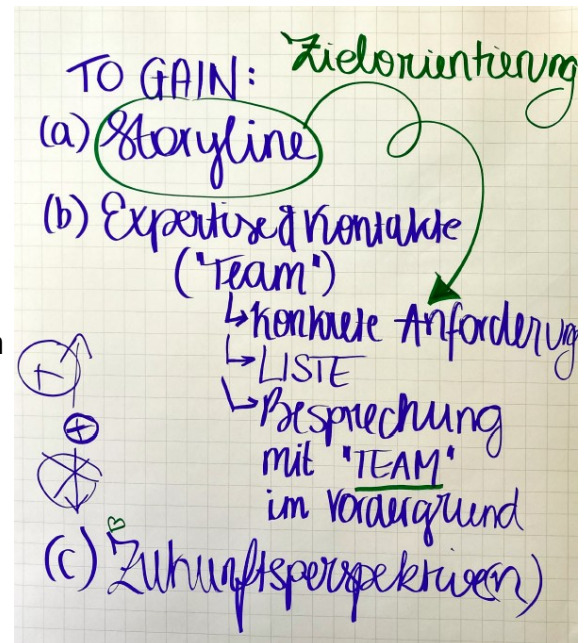 Zielorientierung
TO GAIN:
(a) Storyline
(b) Expertise & Kontakte
("Team")
↳ Konkrete Anforderung
↳ LISTE
↳ Besprechung
mit "TEAM"
im Vordergrund
(c) Zukunftsperspektive(n)